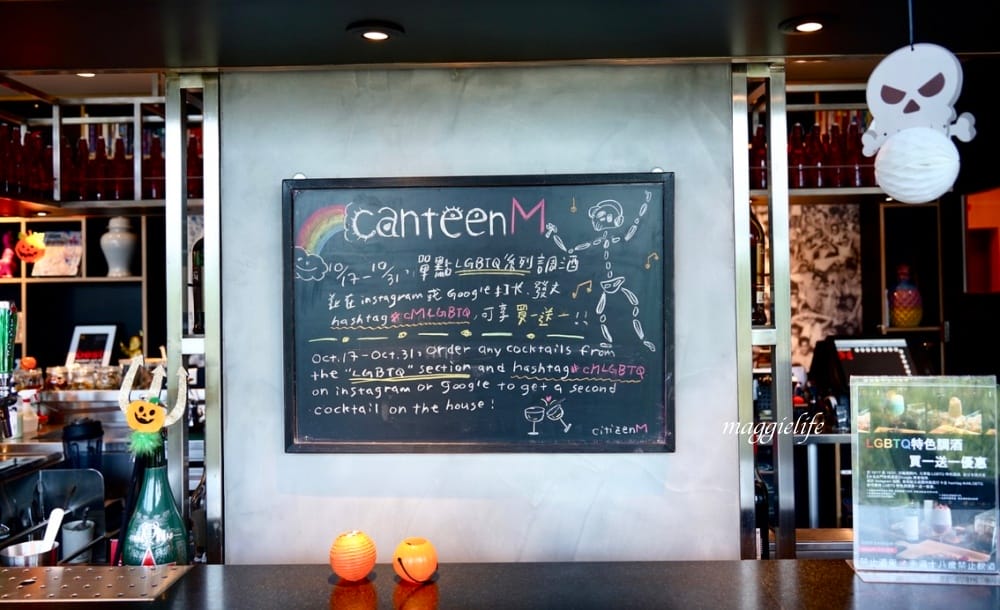 canteenM
10/17-10/31, 單點LGBTQ系列調酒
並在instagram或Google打卡、發文
hashtag#cMLGBTQ, 可享買一送一!!
Oct.17-Oct.31, order any cocktails from
the "LGBTQ" section and hashtag#cMLGBTQ
on instagram or google to get a second
cocktail on the house!
citizenM
maggielife
LGBTQ特色調酒
買一送一優惠